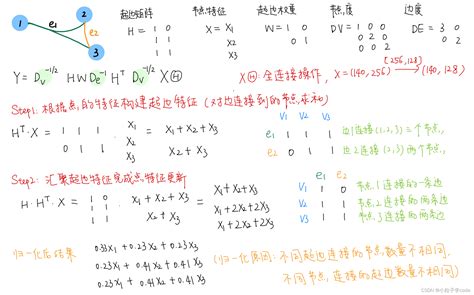 1 e₁ 2 e₂ 3
超边矩阵 节点特征 超边权重 节点度 边度
H = 1 0 X = X₁ W = 1 0 DV = 1 0 0 DE = 3 0
1 1 X₂ 0 1 0 2 0 0 2
1 1 X₃ 0 0 2
Y = Dv^-1/2 H W De^-1 H^T Dv^-1/2 X Ⓗ
XⒽ: 全连接操作, X = (140, 256) → (140, 128)
[256, 128]
Step1: 根据点的特征构建超边特征 (对边连接到的节点求和)
H^T·X = 1 1 1 · X₁ = X₁ + X₂ + X₃
0 1 1 X₂ X₂ + X₃
X₃
V₁ V₂ V₃
e₁ 1 1 1 边1连接(1,2,3)三个节点,
e₂ 0 1 1 边2连接(2,3)两个节点,
Step2: 汇聚超边特征完成点特征更新
H·H^T·X = 1 0 · X₁ + X₂ + X₃ = X₁ + X₂ + X₃
1 1 X₂ + X₃ X₁ + 2X₂ + 2X₃
1 1 X₁ + 2X₂ + 2X₃
e₁ e₂
V₁ 1 0 节点1连接的一条边
V₂ 1 1 节点2连接的两条边
V₃ 1 1 节点3连接的两条边
归一化后结果
0.33X₁ + 0.23X₂ + 0.23X₃
0.23X₁ + 0.41X₂ + 0.41X₃
0.23X₁ + 0.41X₂ + 0.41X₃
(归一化原因: 不同超边连接的节点数量不相同,
不同节点连接的超边数量不同)